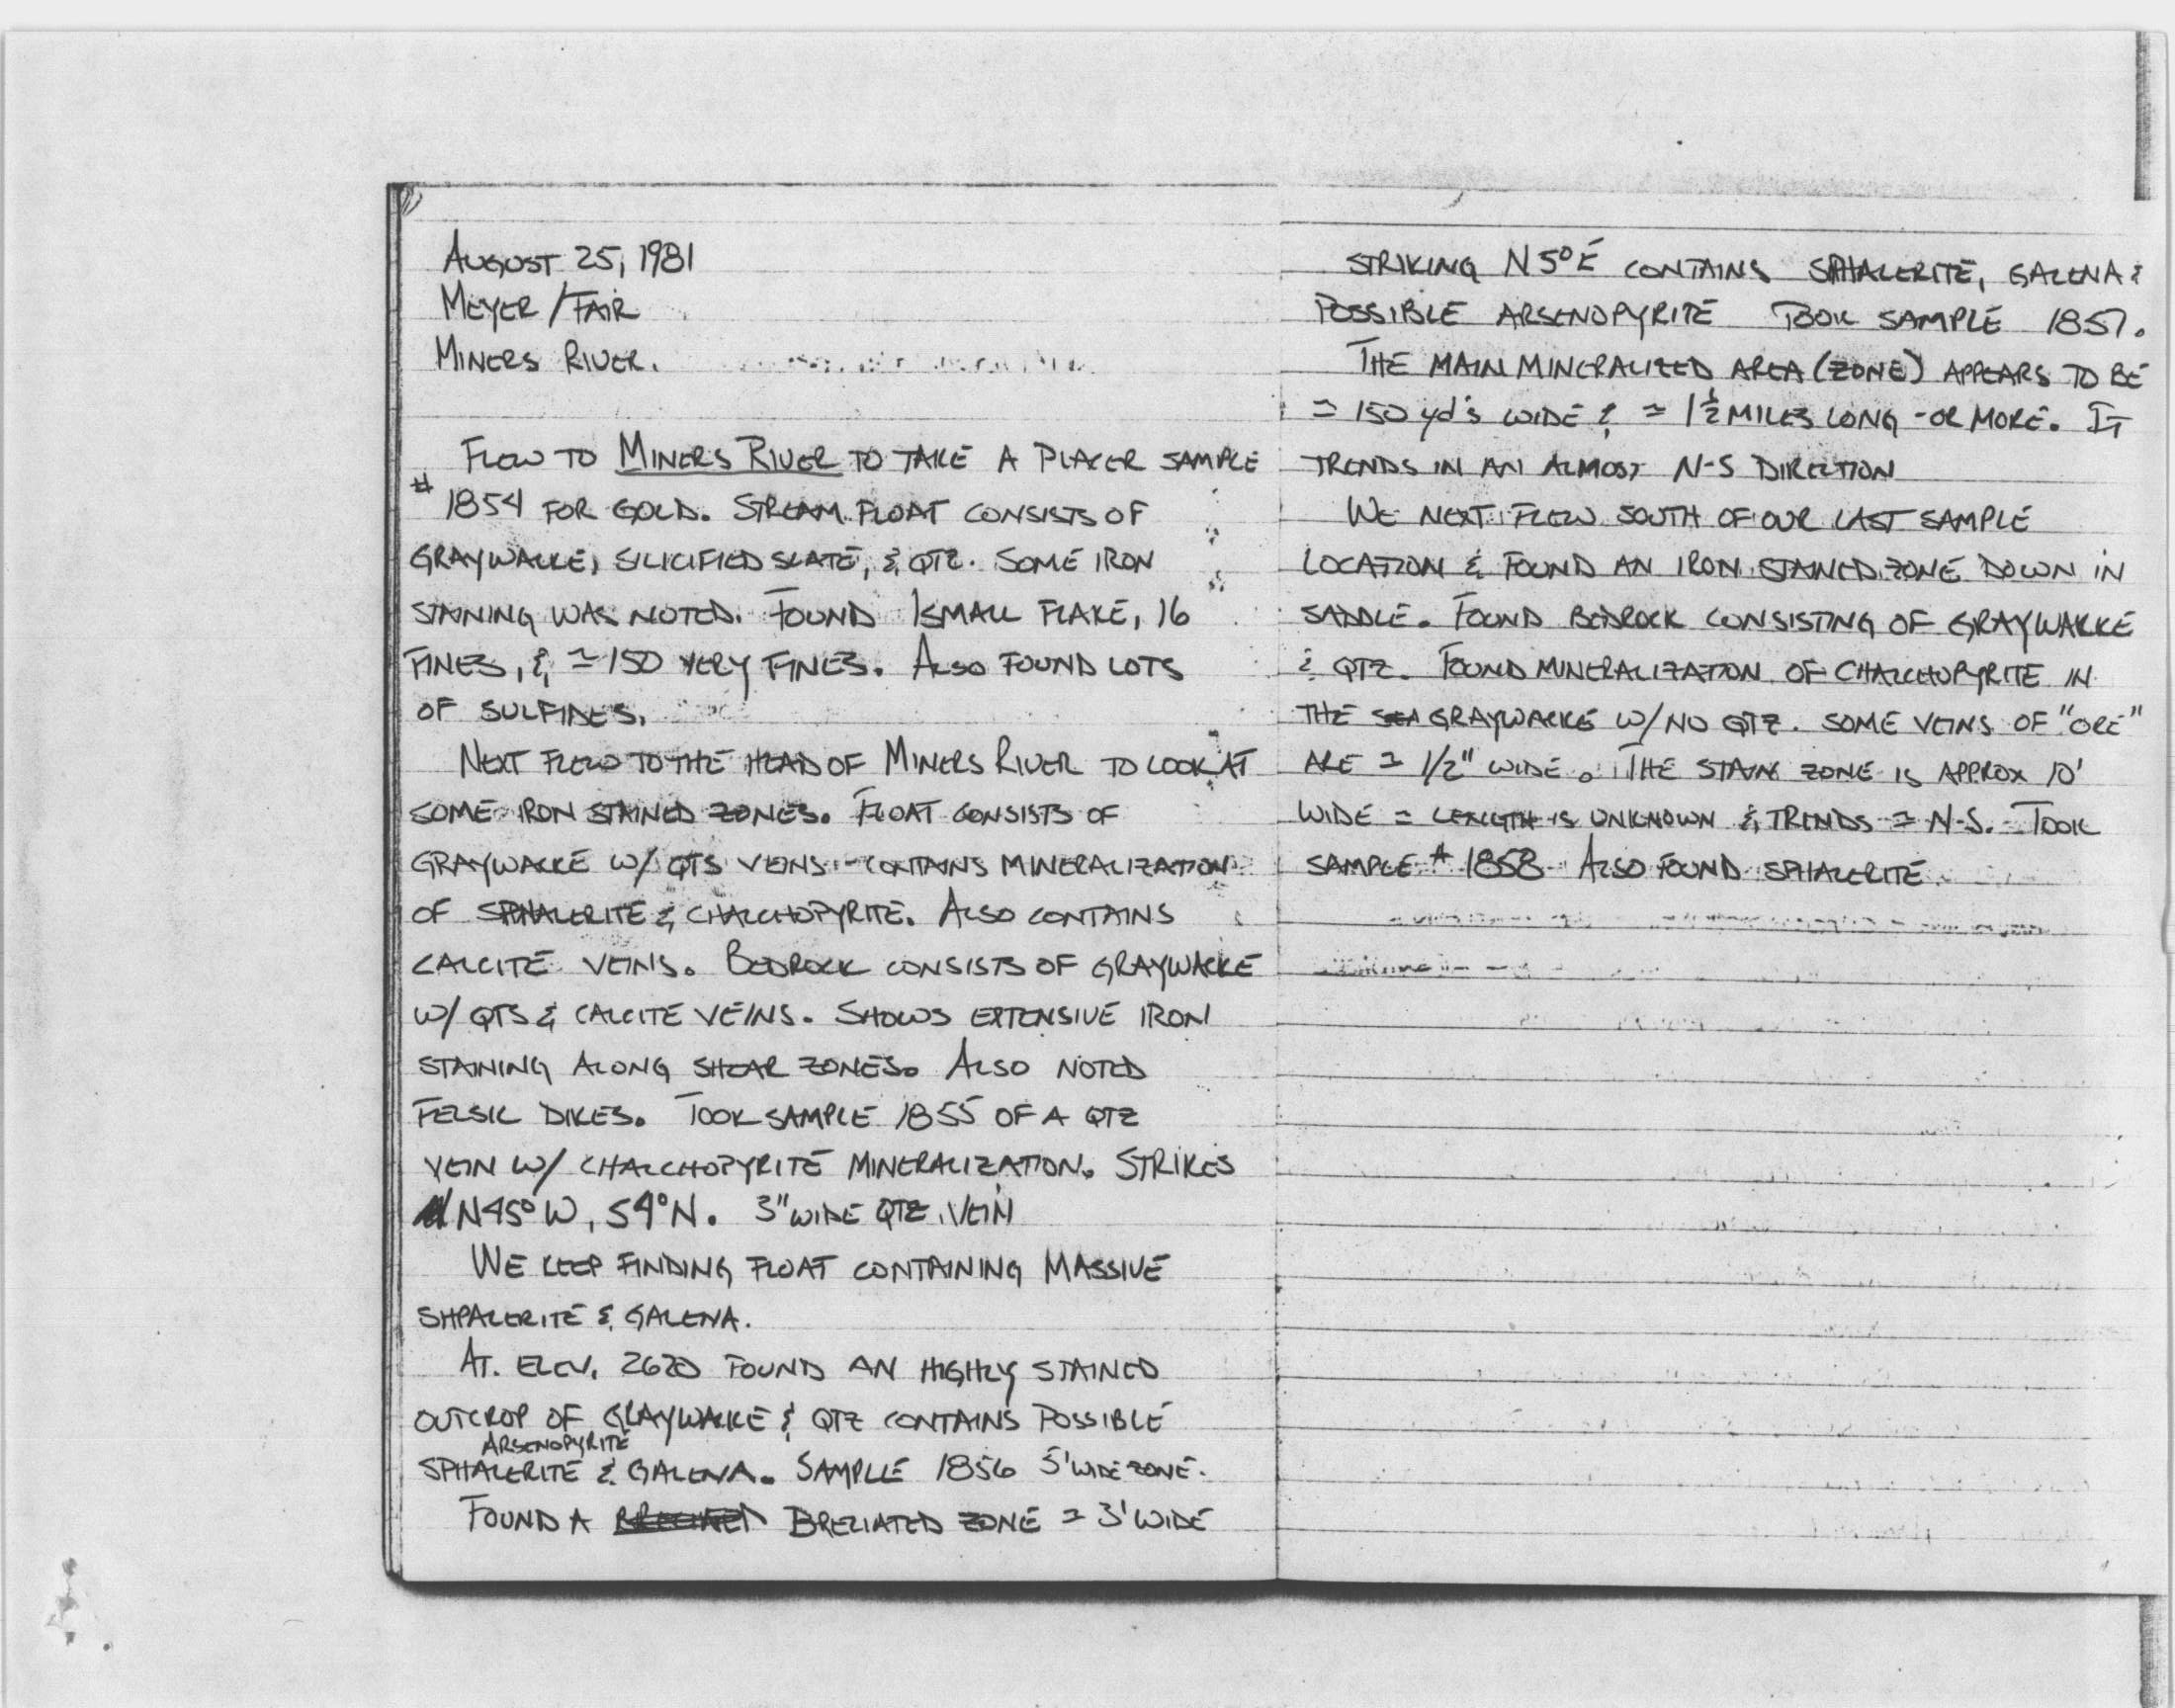 AUGUST 25, 1981
MEYER/FAIR
MINERS RIVER.
FLEW TO MINERS RIVER TO TAKE A PLACER SAMPLE
# 1854 FOR GOLD. STREAM FLOAT CONSISTS OF
GRAYWACKE, SILICIFIED SLATE, & QTZ. SOME IRON
STAINING WAS NOTED. FOUND 1 SMALL FLAKE, 16
FINES, & ≃ 150 VERY FINES. ALSO FOUND LOTS
OF SULFIDES.
NEXT FLEW TO THE HEAD OF MINERS RIVER TO LOOK AT
SOME IRON STAINED ZONES. FLOAT CONSISTS OF
GRAYWACKE W/ QTS VEINS - CONTAINS MINERALIZATION
OF SPHALERITE & CHALCHOPYRITE. ALSO CONTAINS
CALCITE VEINS. BEDROCK CONSISTS OF GRAYWACKE
W/ QTS & CALCITE VEINS. SHOWS EXTENSIVE IRON
STAINING ALONG SHEAR ZONES. ALSO NOTED
FELSIC DIKES. TOOK SAMPLE 1855 OF A QTZ
VEIN W/ CHALCHOPYRITE MINERALIZATION. STRIKES
N45°W, 54°N. 3" WIDE QTZ VEIN
WE KEEP FINDING FLOAT CONTAINING MASSIVE
SHPALERITE & GALENA.
AT. ELEV. 2620 FOUND AN HIGHLY STAINED
OUTCROP OF GRAYWACKE & QTZ CONTAINS POSSIBLE
ARSENOPYRITE
SPHALERITE & GALENA. SAMPLE 1856 5' WIDE ZONE.
FOUND A BRECIATED ZONE ≃ 3' WIDE
STRIKING N5°E CONTAINS SPHALERITE, GALENA &
POSSIBLE ARSENOPYRITE TOOK SAMPLE 1857.
THE MAIN MINERALIZED AREA (ZONE) APPEARS TO BE
≃ 150 yd's WIDE & ≃ 1 1/2 MILES LONG - OR MORE. IT
TRENDS IN AN ALMOST N-S DIRECTION
WE NEXT FLEW SOUTH OF OUR LAST SAMPLE
LOCATION & FOUND AN IRON STAINED ZONE DOWN IN
SADDLE. FOUND BEDROCK CONSISTING OF GRAYWACKE
& QTZ. FOUND MINERALIZATION OF CHALCHOPYRITE IN
THE GRAYWACKE W/NO QTZ. SOME VEINS OF "ORE"
ARE ≃ 1/2" WIDE. THE STAIN ZONE IS APPROX 10'
WIDE = LENGTH IS UNKNOWN & TRENDS ≃ N-S. TOOK
SAMPLE # 1858 ALSO FOUND SPHALERITE